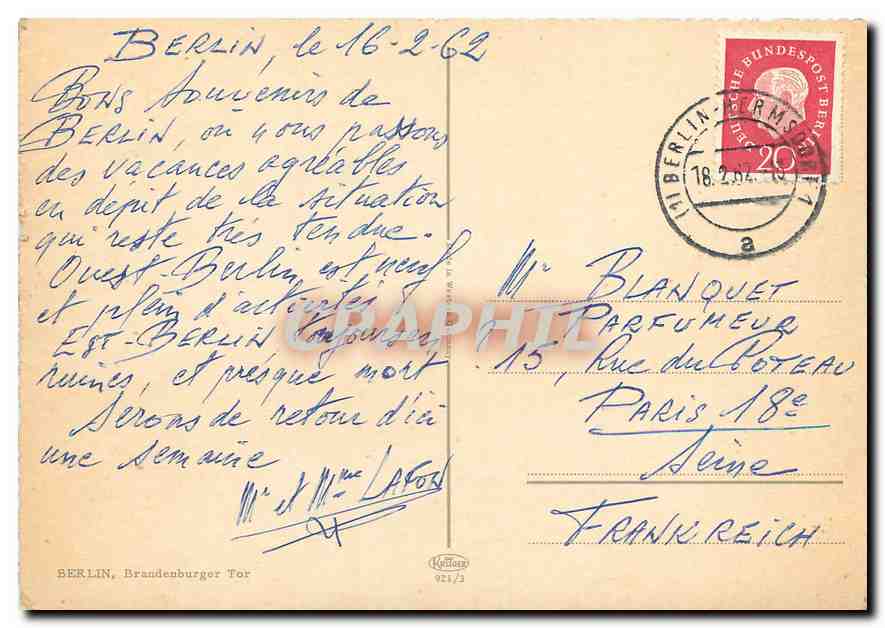 BERLIN, le 16-2-62
Bons souvenirs de
BERLIN, où nous passons
des vacances agréables
en dépit de la situation
qui reste très tendue.
Ouest-Berlin est neuf
et plein d'activités,
Est-BERLIN toujours en
ruines, et presque mort
Serons de retour d'ici
une semaine
Mr et Mme LAFON
BERLIN, Brandenburger Tor
KRÜGER
921/3
DEUTSCHE BUNDESPOST BERLIN
20
(1) BERLIN-HERMSDORF 1
18.2.62
a
Mr BLANQUET
PARFUMEUR
15, Rue du POTEAU
PARIS 18e
Seine
FRANKREICH
CRAPHIL